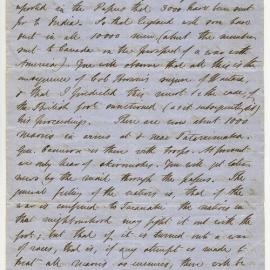 reported in the Papers that 3000 have been sent
for to India. So that England will soon have
sent in all 10000 men (about the number
sent to Canada on the prospect of a war with
America). You will observe that all this is the
consequence of Col. Browne's seizure of Waitara,
& that if Igralfield this must be the case, if
the British Govt. sanctioned (as it subsequently did)
his proceedings. There are now about 1000
Maoris in arms at & near Tataraimaka.
Gen. Cameron is there with troops. At present
we only hear of skirmishes. You will get later
news by the mail through the papers. The
general feeling of the natives is, that if the
war is confined to Taranaki the natives in
that neighbourhood may fight it out with the
Govt; but that if it is turned out a war
of races, that is, if any attempt is made to
treat all Maoris as enemies, there will be